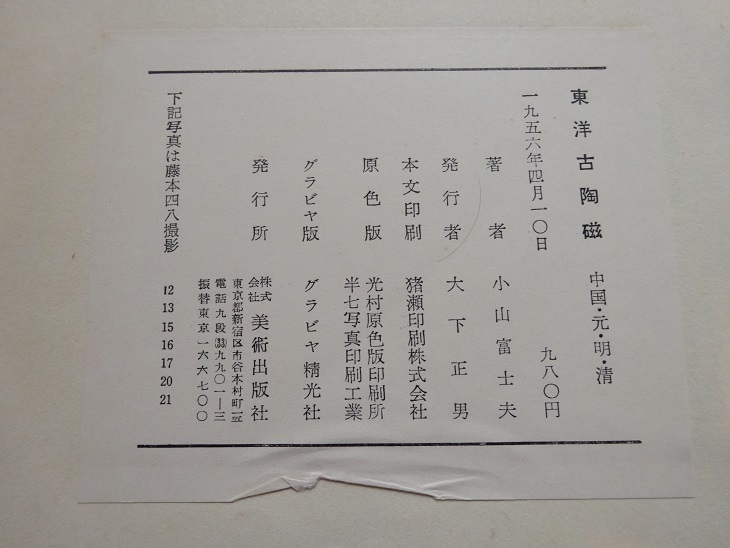 東洋古陶磁 中国・元・明・清
一九五六年四月一〇日 九八〇円
著者 小山富士夫
発行者 大下正男
本文印刷 猪瀬印刷株式会社
原色版 光村原色版印刷所
半七写真印刷工業
グラビヤ版 グラビヤ精光社
発行所 株式会社 美術出版社
東京都新宿区市谷本村町
電話九段九九〇一―三
振替東京一六六七〇〇
下記写真は藤本四八撮影 12 13 15 16 17 20 21